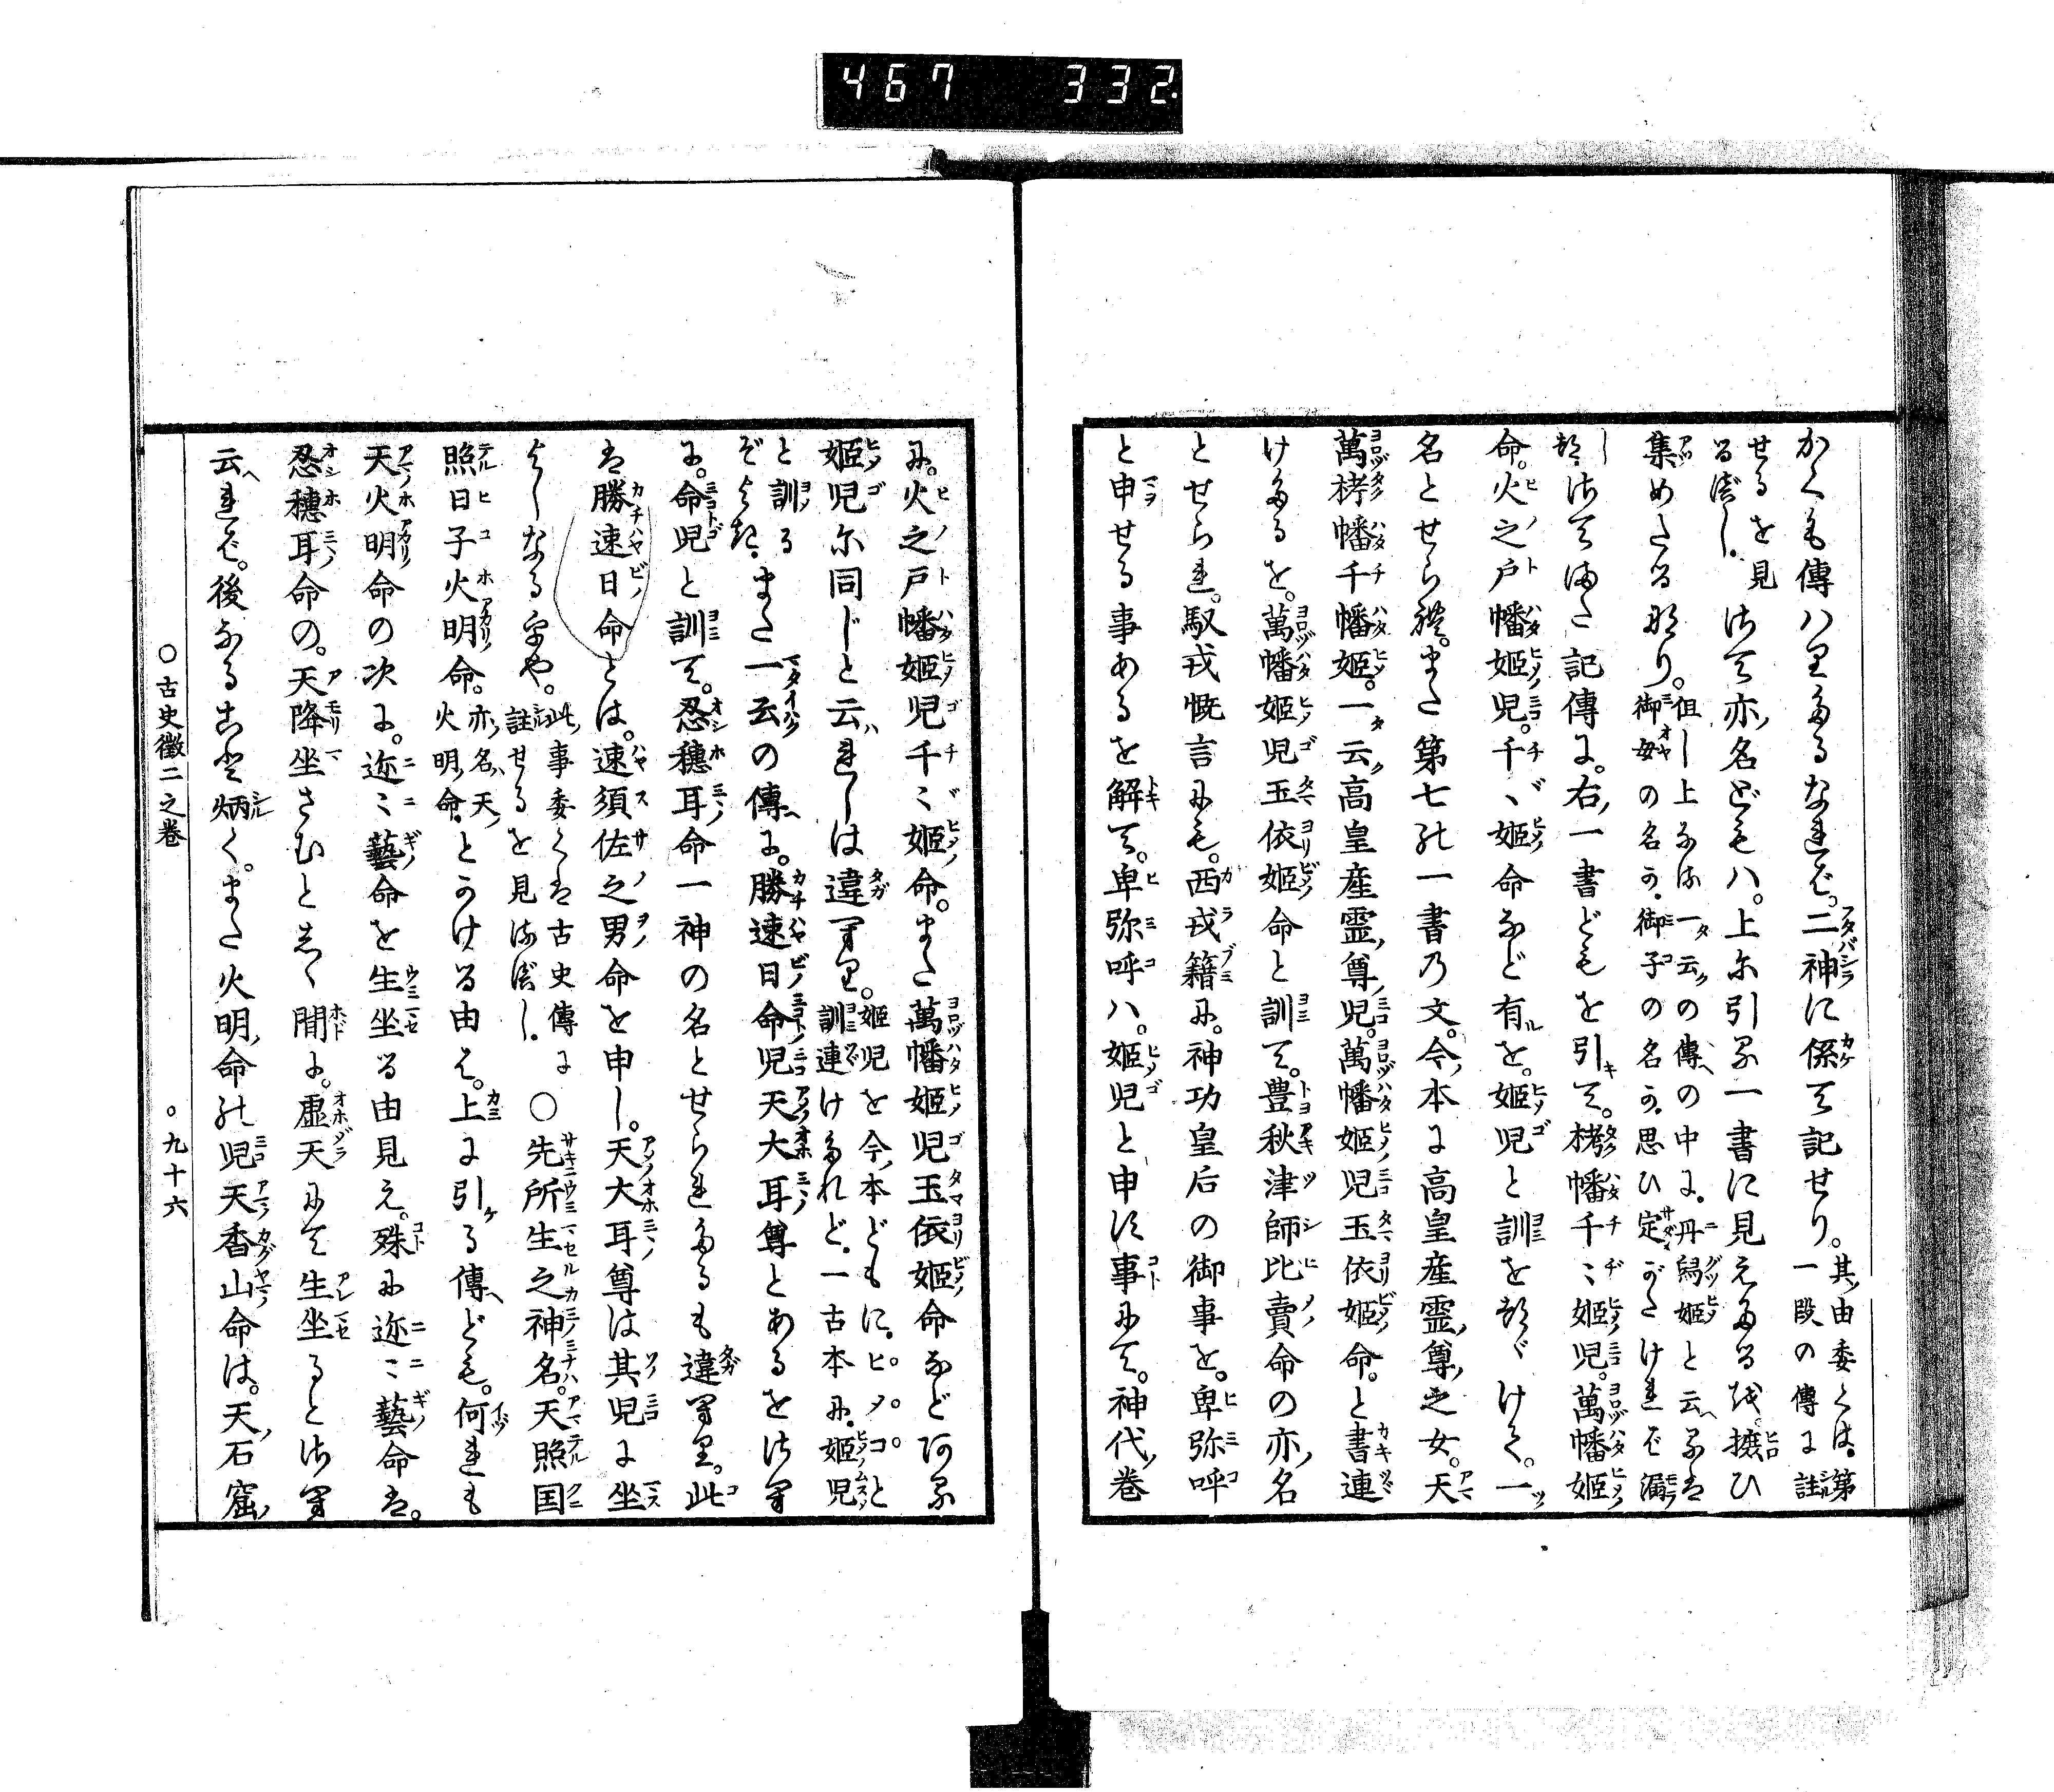 467 332.
かくも傳ハりたるなれば。二神に係て記せり。其由委くは。第一段の傳に註
せるを見るべし。さて亦名どもハ。上に引る一書に見えたるを。摭ひ
集めたるなり。但し上なる一云の傳の中に。丹舄姫と云るは御女の名か。御子の名か。思ひ定がたければ漏
しつ。さてまた記傳に。右一書どもを引て。栲幡千〻姫児。萬幡姫
命。火之戸幡姫児。千〻姫命など有を。姫児と訓をつゞけて。一
名とせられ。また第七の一書の文。今本に高皇産霊尊之女。天
萬栲幡千幡姫。一云高皇産霊尊児。萬幡姫児玉依姫命。と書連
けたるを。萬幡姫児玉依姫命と訓て。豊秋津師比賣命の亦名
とせられ。馭戎慨言にも。西戎籍に。神功皇后の御事を。卑弥呼
と申せる事あるを解て。卑弥呼ハ。姫児と申す事にて。神代巻
に。火之戸幡姫児千〻姫命。また萬幡姫児玉依姫命などある
姫児に同じと云れしは違へり。姫児を今本どもに。ヒメコと訓連けたれど。一古本に。姫児
と訓るぞよき。また一云の傳に。勝速日命児天大耳尊とあるをさへ
に。命児と訓て。忍穗耳命一神の名とせられたるも違へり。此
は勝速日命とは。速須佐之男命を申し。天大耳尊は其児に坐
よしなるをや。此事委くは古史傳に註せるを見るべし。〇先所生之神名。天照国
照日子火明命。亦名天火明命とかける由は。上に引る傳ども。何れも
天火明命の次に。迩〻藝命を生坐る由見え。殊に迩〻藝命は。
忍穗耳命の。天降坐さむとしゝ間に。虚天にて生坐るとさへ
云れば。後なること炳く。また火明命の児天香山命は。天石窟
〇古史徴二之巻 〇九十六